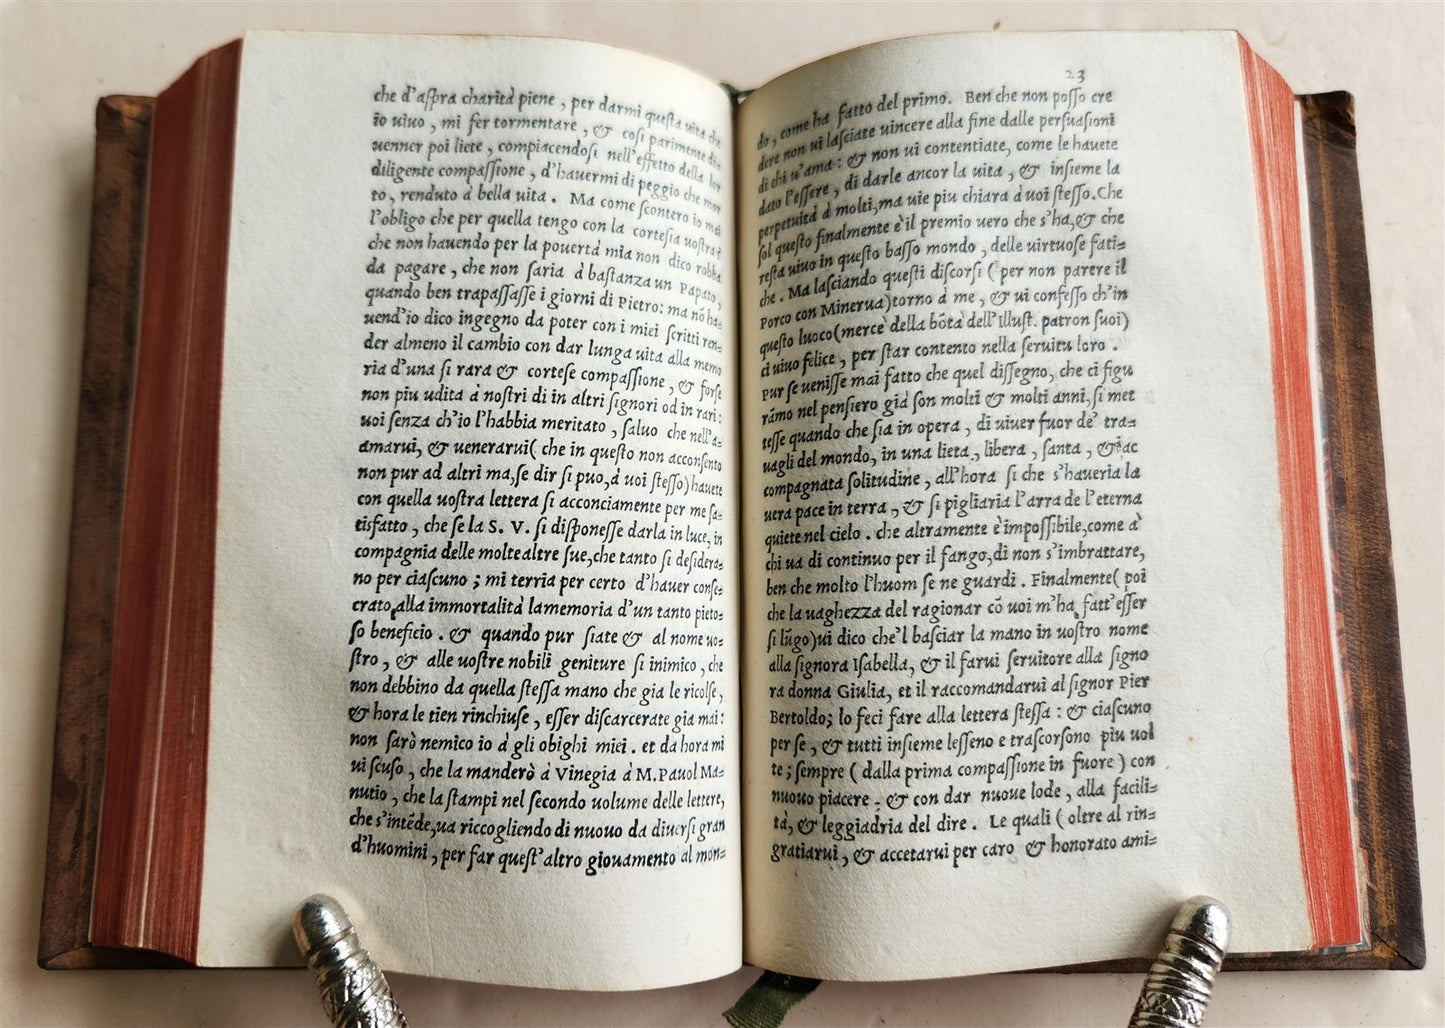 che d'aſpra charità piene, per darmi queſta uita che
io uiuo, mi fer tormentare, & coſi parimente di-
uenner poi liete, compiacendoſi nell'effetto della lor
diligente compaſſione, d'hauermi di peggio che mor
to, renduto à bella uita. Ma come ſcontero io mai
l'obligo che per quella tengo con la corteſia uoſtra?
che non hauendo per la pouertà mia non dico robba
da pagare, che non ſaria à baſtanza un Papato,
quando ben trapaſſaſſe i giorni di Pietro: ma nõ ha-
uend'io dico ingegno da poter con i miei ſcritti ren-
der almeno il cambio con dar lunga uita alla memo
ria d'una ſi rara & corteſe compaſſione, & forſe
non piu udita à noſtri di in altri ſignori od in rari:
uoi ſenza ch'io l'habbia meritato, ſaluo che nell'a-
amarui, & uenerarui( che in queſto non acconſento
non pur ad altri ma,ſe dir ſi puo,à uoi ſteſſo)hauete
con quella uoſtra lettera ſi acconciamente per me ſa-
tisfatto, che ſe la S. V. ſi diſponeſſe darla in luce, in
compagnia delle molte altre ſue,che tanto ſi deſidera-
no per ciaſcuno; mi terria per certo d'hauer conſe-
crato alla immortalità la memoria d'un tanto pieto-
ſo beneficio. & quando pur ſiate & al nome uo-
ſtro, & alle uoſtre nobili geniture ſi inimico, che
non debbino da quella ſteſſa mano che gia le ricolſe,
& hora le tien rinchiuſe, eſſer diſcarcerate gia mai:
non ſarò nemico io à gli obighi miei. et da hora mi
ui ſcuſo, che la manderò à Vinegia à M.Pauol Ma-
nutio, che la ſtampi nel ſecondo uolume delle lettere,
che s'intẽde,ua riccogliendo di nuouo da diuerſi gran
d'huomini, per far queſt'altro giouamento al mon-
23
do, come ha fatto del primo. Ben che non poſſo cre
dere non ui laſciate uincere alla fine dalle perſuaſioni
di chi u'ama: & non ui contentiate, come le hauete
dato l'eſſere, di darle ancor la uita, & inſieme la
perpetuità à molti,ma uie piu chiara à uoi ſteſſo.Che
ſol queſto finalmente è il premio uero che s'ha,& che
reſta uiuo in queſto baſſo mondo, delle uirtuoſe fati-
che. Ma laſciando queſti diſcorſi (per non parere il
Porco con Minerua)torno à me, & ui confeſſo ch'in
queſto luoco(mercè della bõtà dell'Illuſt. patron ſuoi)
ci uiuo felice, per ſtar contento nella ſeruitu loro.
Pur ſe ueniſſe mai fatto che quel diſſegno, che ci figu
rãmo nel penſiero già ſon molti & molti anni, ſi met
teſſe quando che ſia in opera, di uiuer fuor de' tra-
uagli del mondo, in una lieta, libera, ſanta, & ac
compagnata ſolitudine, all'hora ſi che s'haueria la
uera pace in terra, & ſi pigliaria l'arra de l'eterna
quiete nel cielo. che altramente è impoſſibile,come à
chi ua di continuo per il fango,di non s'imbrattare,
ben che molto l'huom ſe ne guardi. Finalmente( poi
che la uaghezza del ragionar cõ uoi m'ha fatt'eſſer
ſi lũgo)ui dico che'l baſciar la mano in uoſtro nome
alla ſignora Iſabella, & il farui ſeruitore alla ſigno
ra donna Giulia, et il raccomandarui al ſignor Pier
Bertoldo; lo feci fare alla lettera ſteſſa: & ciaſcuno
per ſe, & tutti inſieme leſſeno e traſcorſono piu uol
te; ſempre ( dalla prima compaſſione in fuore) con
nuouo piacere. & con dar nuoue lode, alla facili-
tà, & leggiadria del dire. Le quali (oltre al rin-
gratiarui, & accetarui per caro & honorato ami-